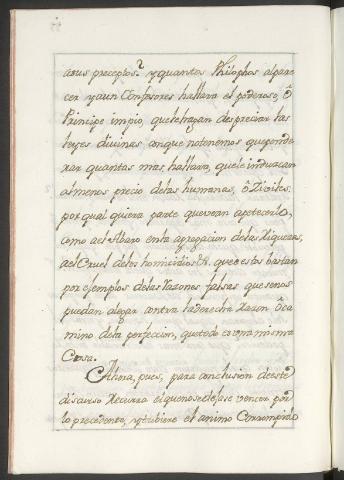 asus preceptos? y quantos Philophos alpare
cer y aun Confesores hallara el poderoso, ô
Principe impio, que le traçan despreciar las
leyes divinas conque notenemos que ponde
rar quantas mas hallara, que le induzcan
almenos precio delas humanas, ô Zibiles:
por qual quiera parte que sean apetecerlo,
como ael Abaro en la agregacion de las Riquezas,
ael Cruel delos homicidios &. que estos bastan
por ejemplos de las razones falsas que se nos
puedan alegar contra la derecha Razon ô ca
mino dela perfecion, que todo es una misma
Cosa.
Ahora, pues, para conclusion deeste
discurso Recurra el que no se dejase vencer por
lo precedente, y perciviere el animo Corrompido